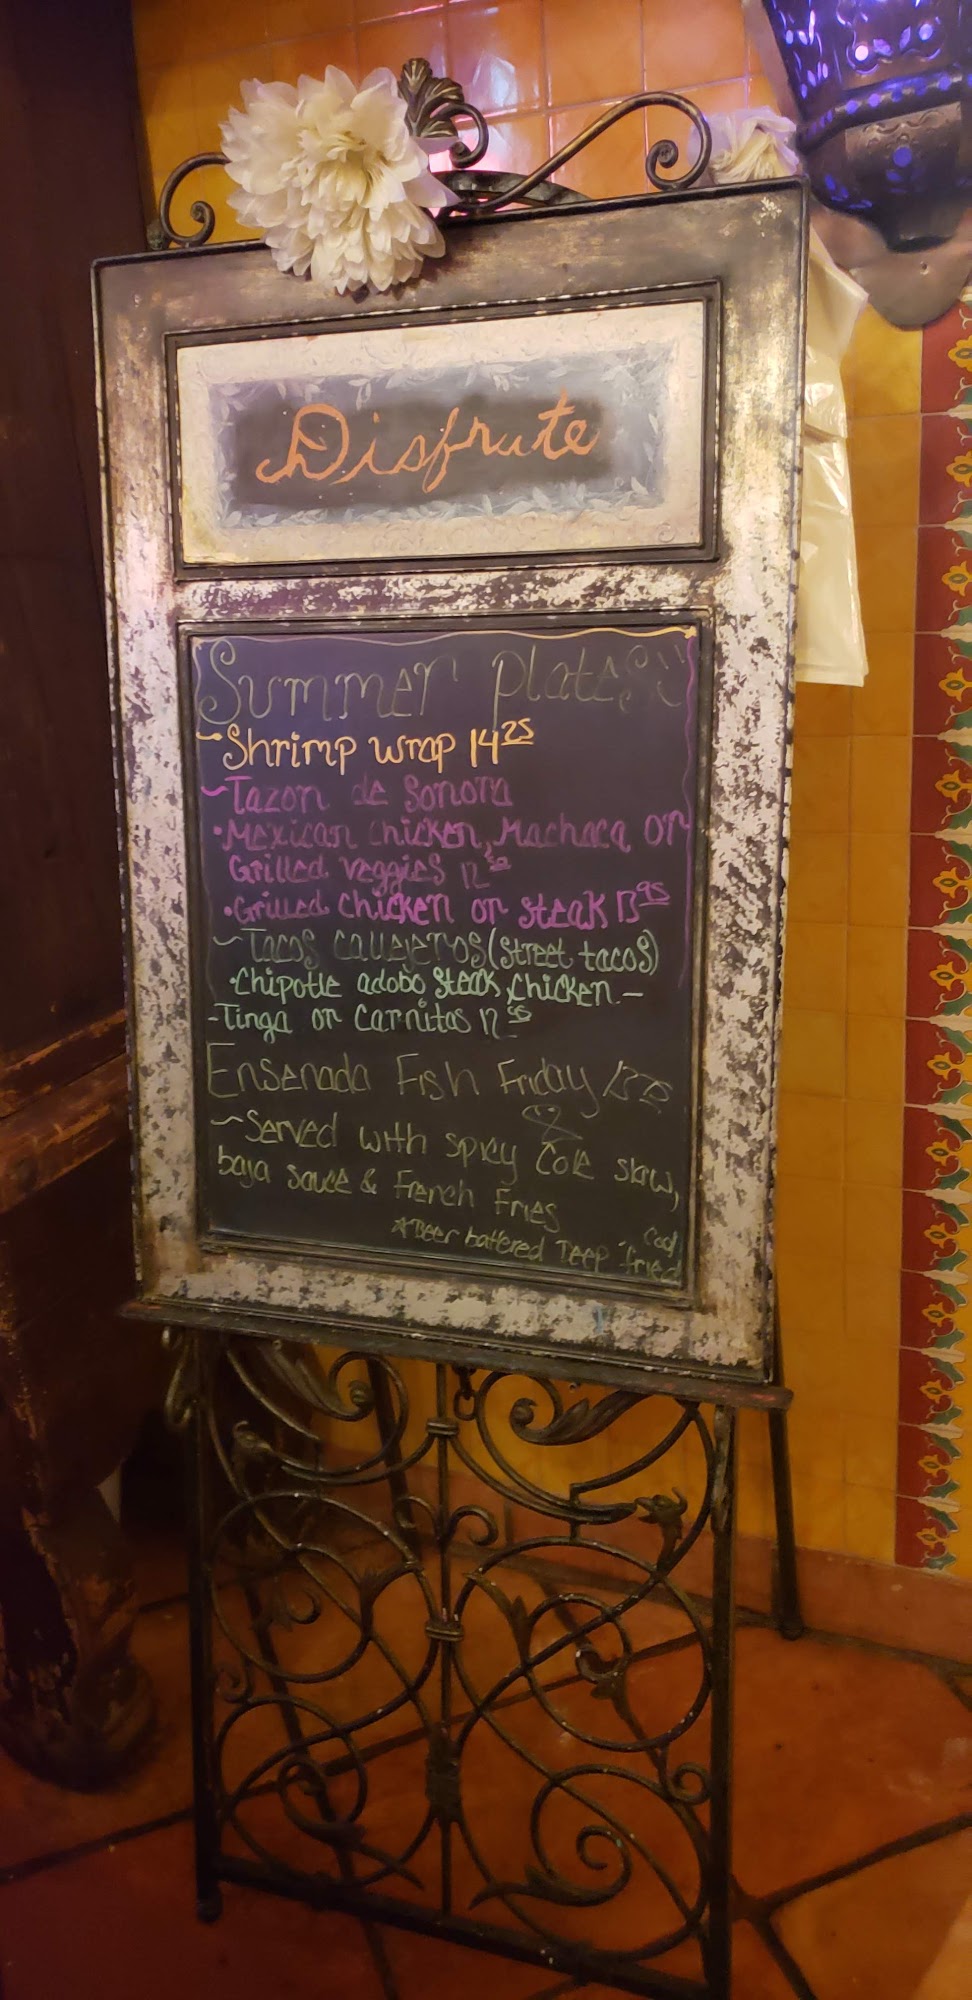 Disfrute
Summer plates:)
~Shrimp wrap 14 25
~Tazon de Sonora
•Mexican chicken, Machaca or
Grilled veggies 12
•Grilled chicken or steak 13 95
~Tacos Callejeros (street tacos)
•Chipotle adobo steak, chicken -
-Tinga or Carnitas 12
Ensenada Fish Friday
~Served with spicy Cole slaw,
baja sauce & French Fries
Cod
*Beer battered Deep fried